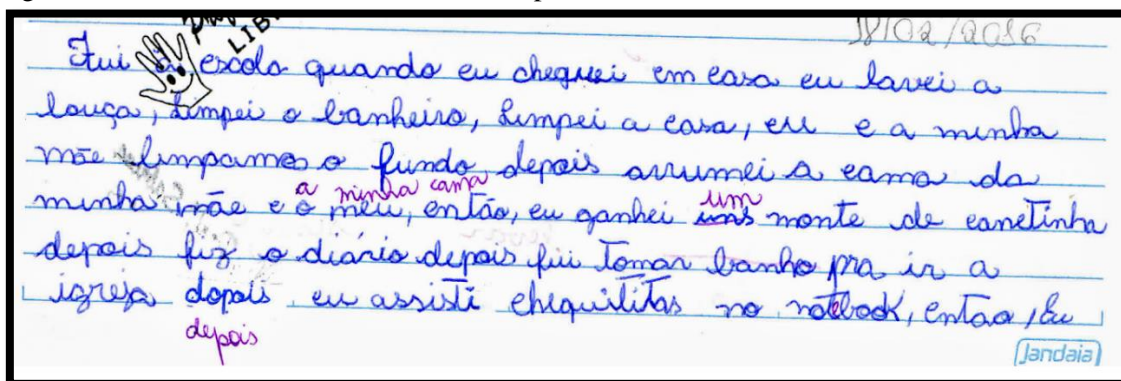 LIB
18/02/2016
Fui escola quando eu cheguei em casa eu lavei a
louça, limpei o banheiro, limpei a casa, eu e a minha
mãe limpamos o fundo depois arrumei a cama da
a minha cama um
minha mãe e o meu, então, eu ganhei uns monte de canetinha
depois fiz o diário depois fui tomar banho pra ir a
igreja dopois eu assisti chequititas no notbook, então, eu
depois
Jandaia